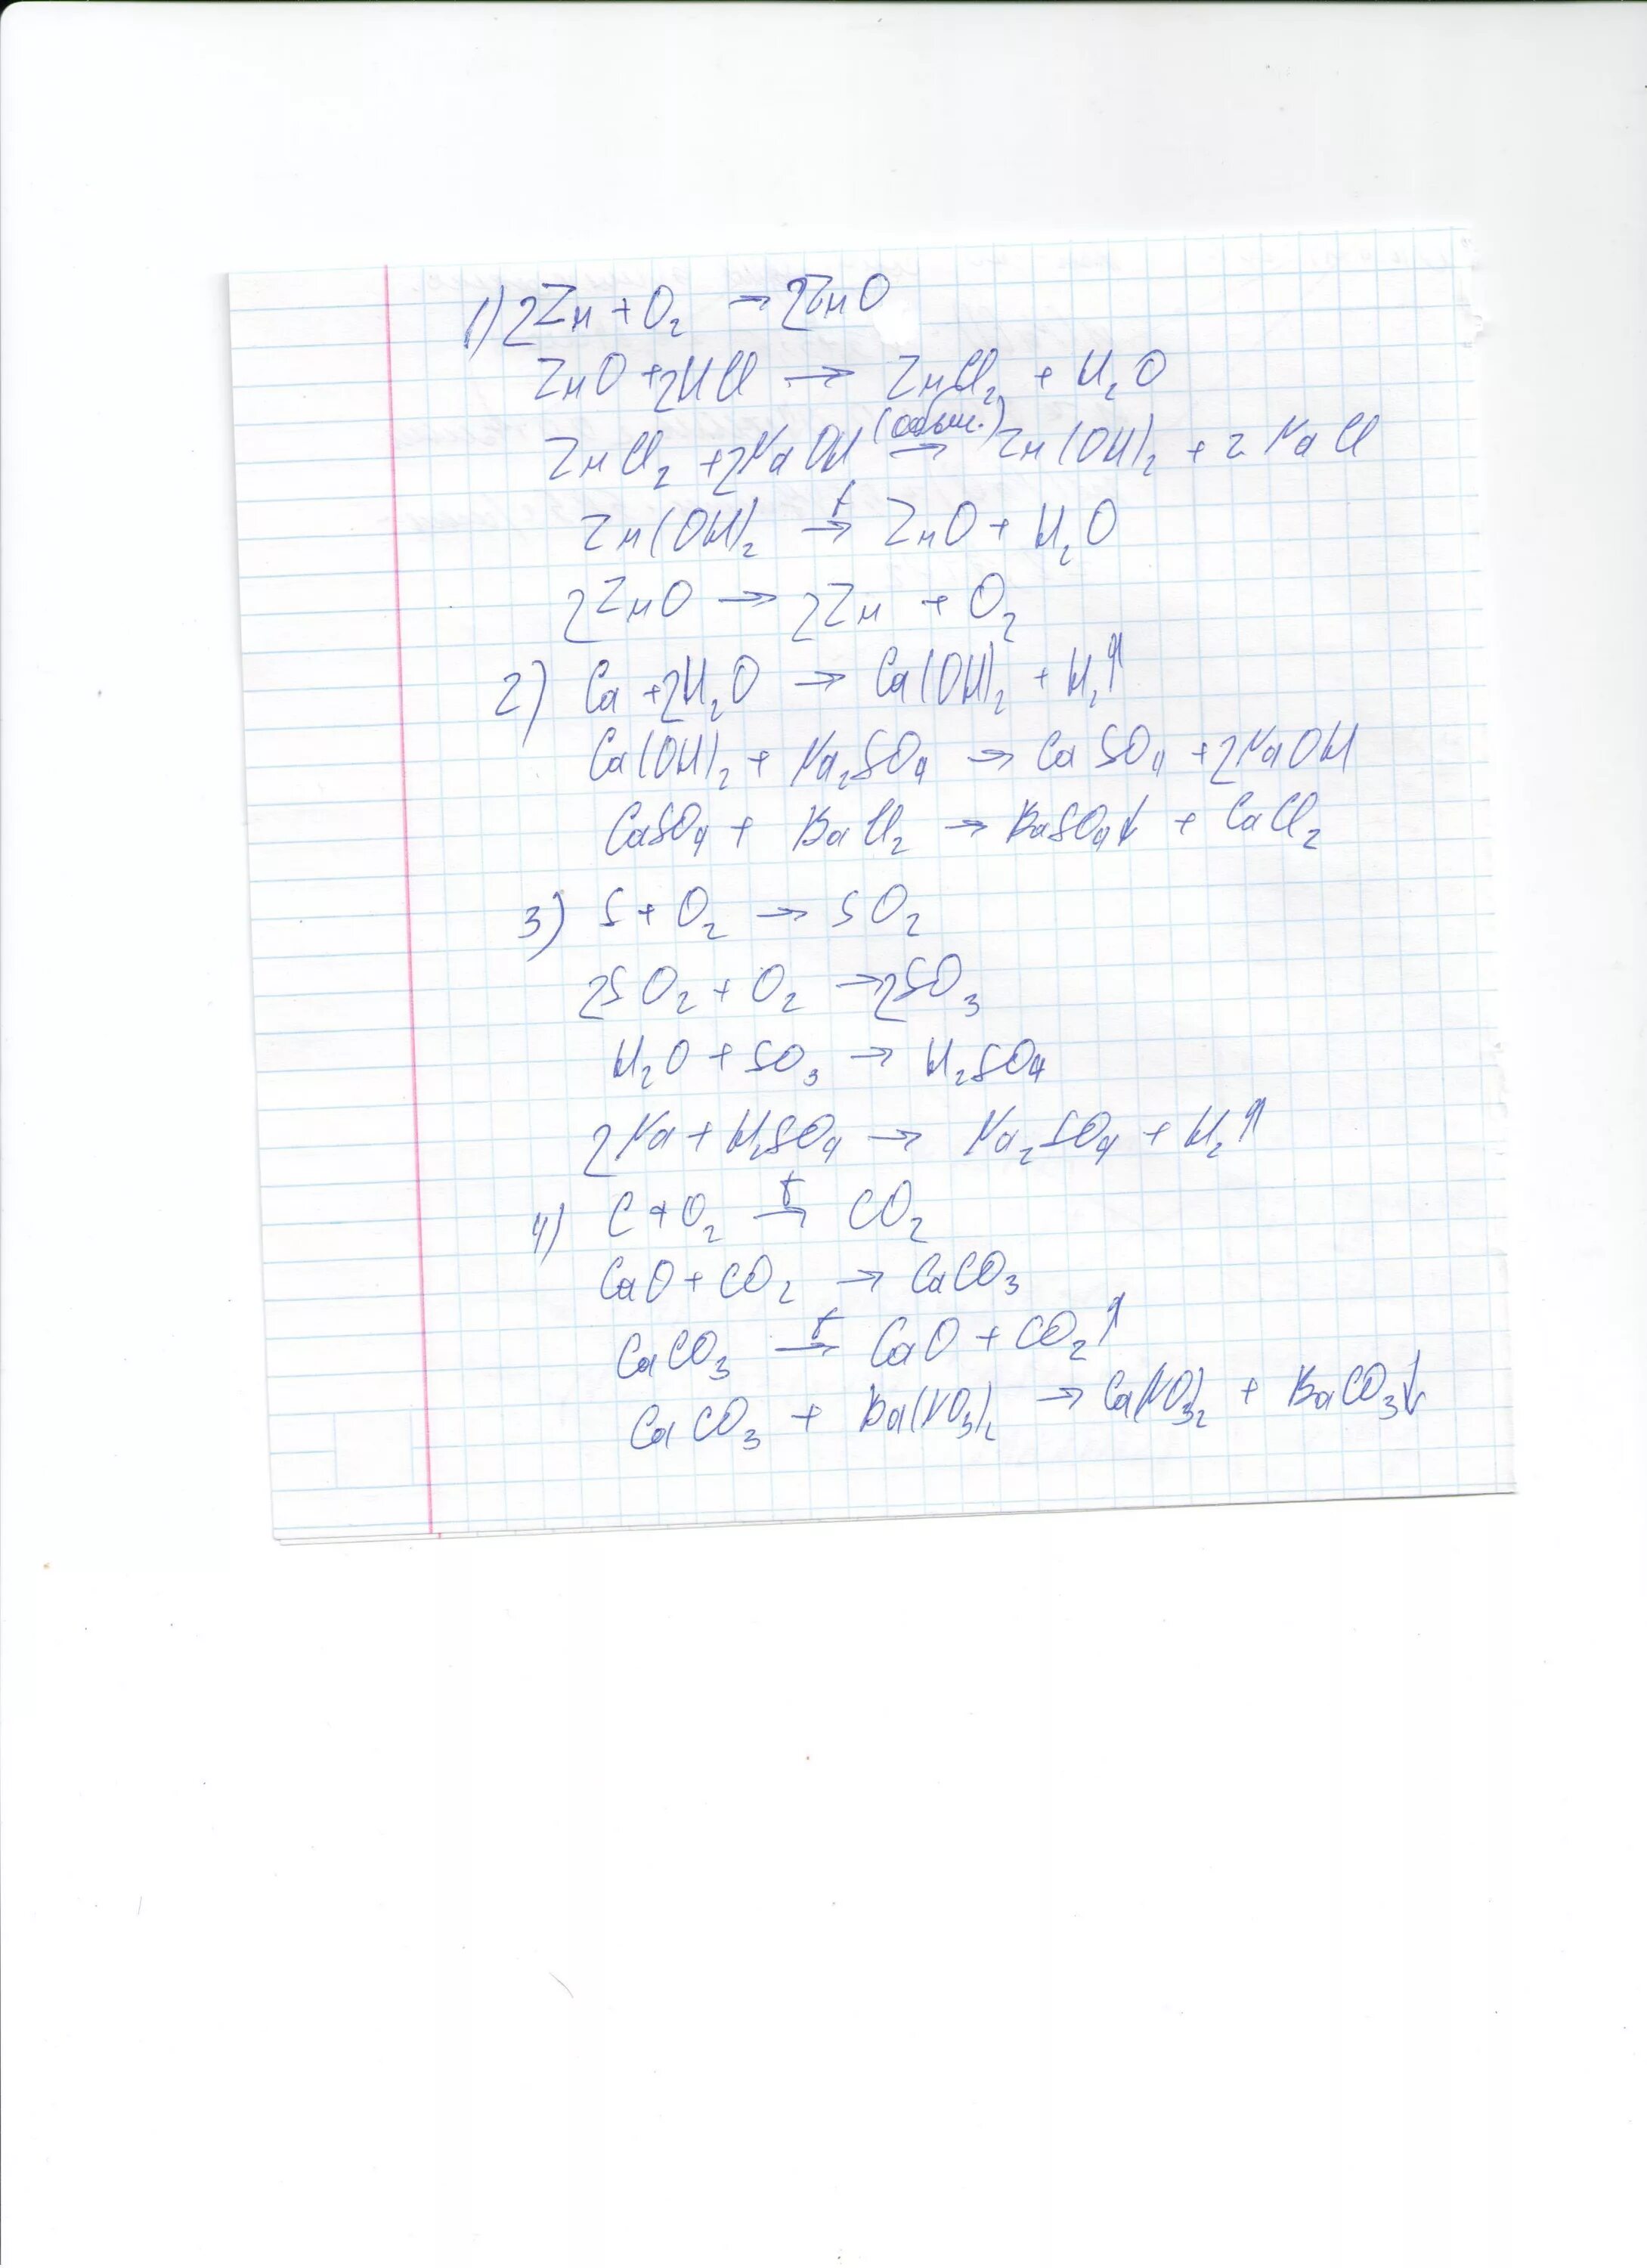 1) 2Zn + O₂ → 2ZnO
ZnO + 2HCl → ZnCl₂ + H₂O
ZnCl₂ + 2NaOH → Zn(OH)₂ + 2NaCl
Zn(OH)₂ t→ ZnO + H₂O
2ZnO → 2Zn + O₂
2) Ca + 2H₂O → Ca(OH)₂ + H₂↑
Ca(OH)₂ + Na₂SO₄ → CaSO₄ + 2NaOH
CaSO₄ + BaCl₂ → BaSO₄↓ + CaCl₂
3) S + O₂ → SO₂
2SO₂ + O₂ → 2SO₃
H₂O + SO₃ → H₂SO₄
2Na + H₂SO₄ → Na₂SO₄ + H₂↑
4) C + O₂ t→ CO₂
CaO + CO₂ → CaCO₃
CaCO₃ t→ CaO + CO₂↑
CaCO₃ + Ba(NO₃)₂ → Ca(NO₃)₂ + BaCO₃↓